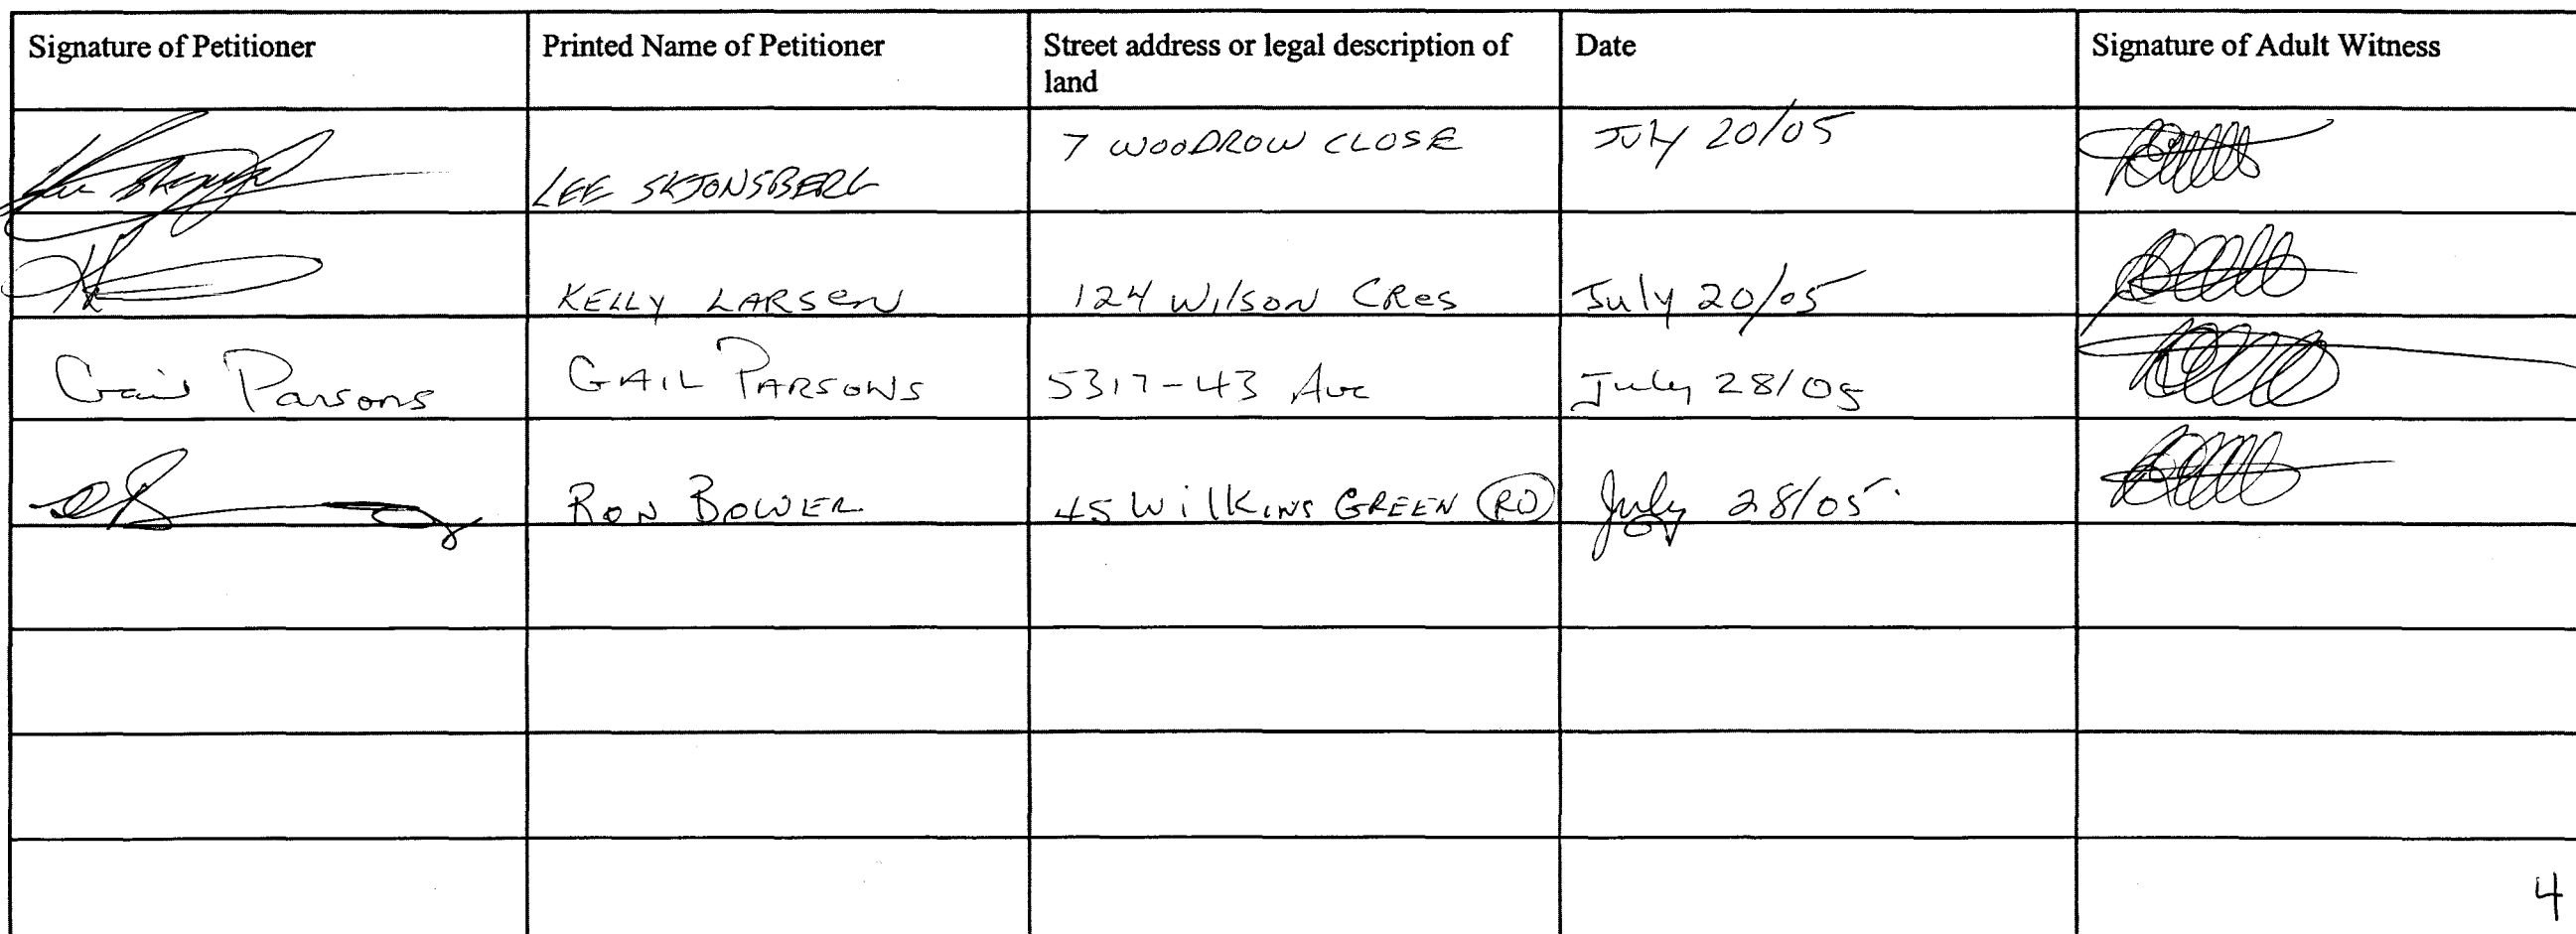 Signature of Petitioner
Printed Name of Petitioner
Street address or legal description of
land
Date
Signature of Adult Witness
LEE SKJONSBERG
7 WOODROW CLOSE
July 20/05
KELLY LARSEN
124 Wilson CRes
July 20/05
Gail Parsons
GAIL PARSONS
5317-43 Ave
July 28/05
RON BOWER
45 WilKINS GREEN RD
July 28/05
4